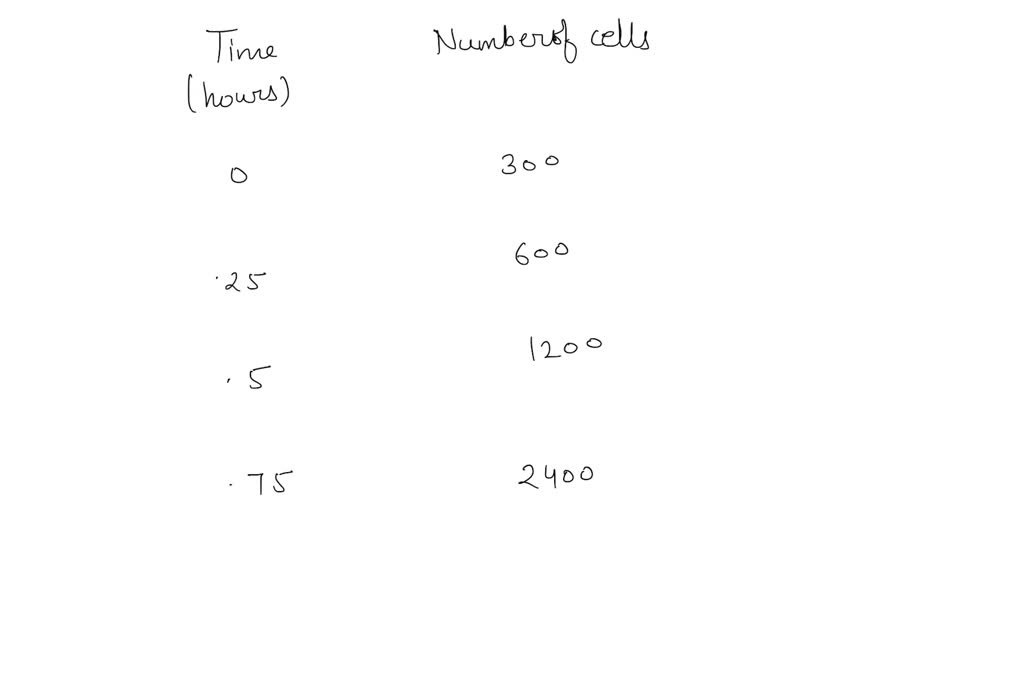 Time Number of cells
(hours)
0 300
.25 600
.5 1200
.75 2400